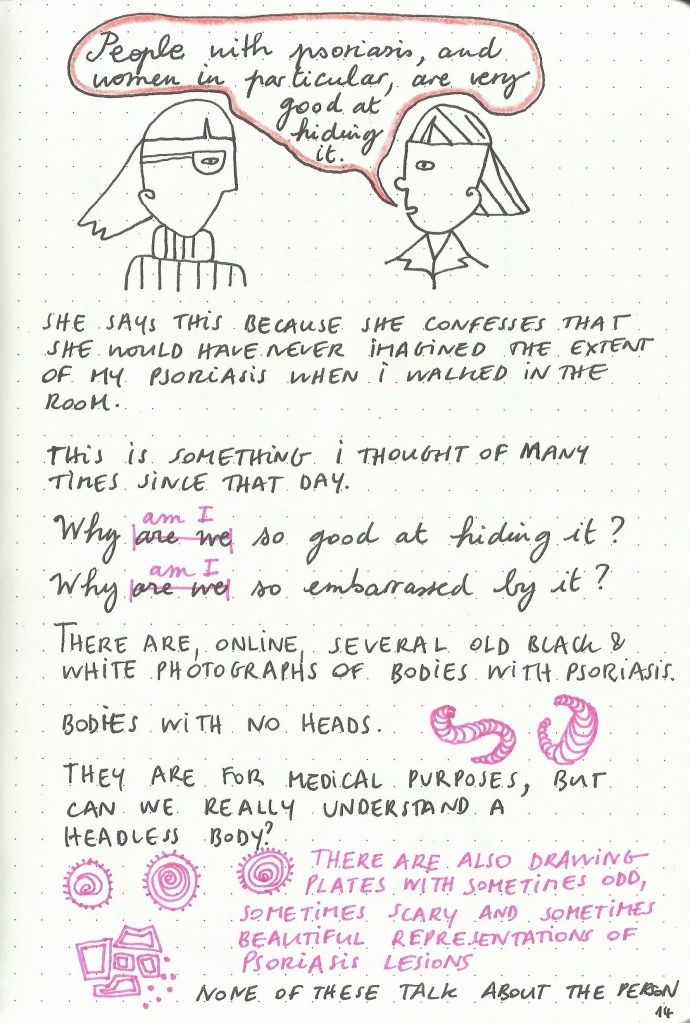 People with psoriasis, and
women in particular, are very
good at
hiding
it.
SHE SAYS THIS BECAUSE SHE CONFESSES THAT
SHE WOULD HAVE NEVER IMAGINED THE EXTENT
OF MY PSORIASIS WHEN i WALKED IN THE
ROOM.
THIS IS SOMETHING i THOUGHT OF MANY
TIMES SINCE THAT DAY.
am I
Why are we so good at hiding it?
am I
Why are we so embarrassed by it?
THERE ARE, ONLINE, SEVERAL OLD BLACK &
WHITE PHOTOGRAPHS OF BODIES WITH PSORIASIS.
BODIES WITH NO HEADS.
THEY ARE FOR MEDICAL PURPOSES, BUT
CAN WE REALLY UNDERSTAND A
HEADLESS BODY?
THERE ARE ALSO DRAWING
PLATES WITH SOMETIMES ODD,
SOMETIMES SCARY AND SOMETIMES
BEAUTIFUL REPRESENTATIONS OF
PSORIASIS LESIONS
NONE OF THESE TALK ABOUT THE PERSON
14